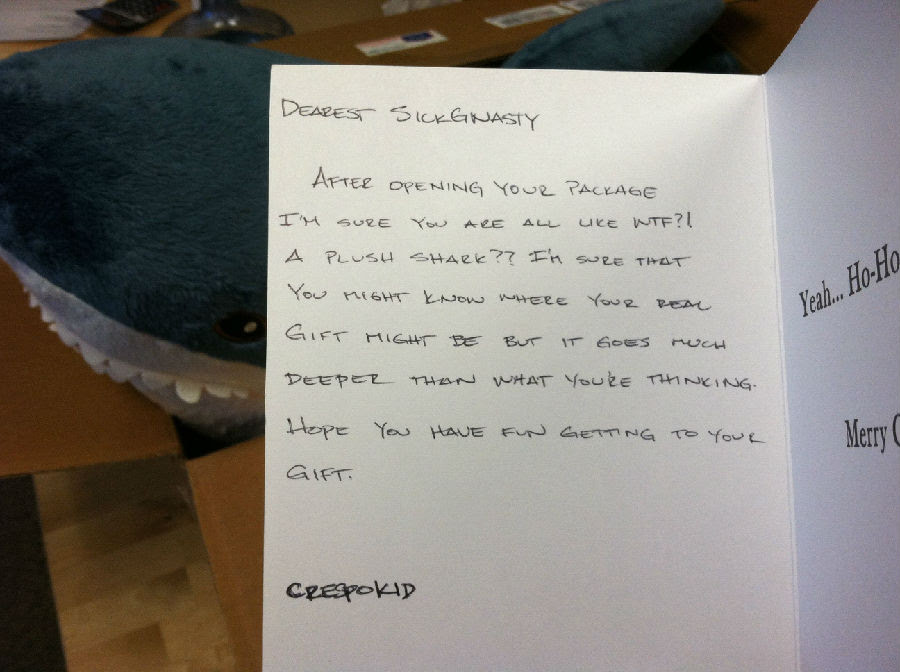 DEAREST SICKGNASTY
AFTER OPENING YOUR PACKAGE
I'M SURE YOU ARE ALL LIKE WTF?!
A PLUSH SHARK?? I'M SURE THAT
YOU MIGHT KNOW WHERE YOUR REAL
GIFT MIGHT BE BUT IT GOES MUCH
DEEPER THAN WHAT YOU'RE THINKING.
HOPE YOU HAVE FUN GETTING TO YOUR
GIFT.
CRESPOKID
Yeah... Ho-Ho
Merry C